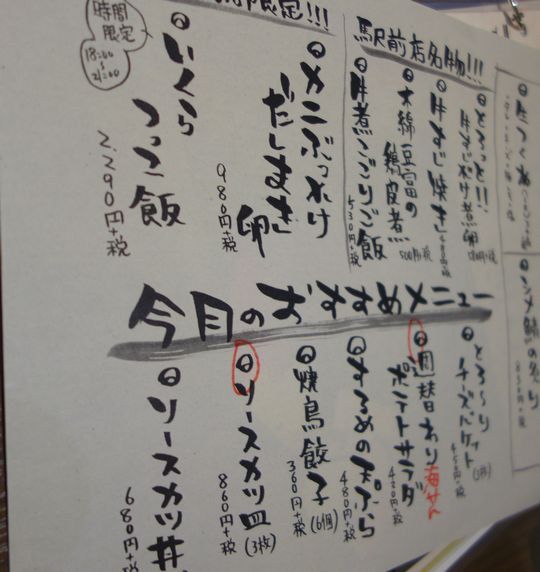 駅前店名物!!!
とろっと!!
牛すじぶっかけ煮卵
牛すじ焼き
木綿豆富の
鶏皮煮
500円+税
牛煮こごりご飯
530円+税
限定!!!
カニぶっかけ
だしまき
卵
980円+税
時間
限定
18:00
〜
21:00
いくら
つっこ飯
2,290円+税
〆鯖の炙り
850円+税
今月のおすすめメニュー
とろ〜り
チーズバケット
(3ヶ)
450円+税
週替わり
ポテトサラダ
420円+税
するめの天ぷら
480円+税
焼鳥餃子
(6個)
360円+税
ソースカツ皿
(3枚)
860円+税
ソースカツ丼
680円+税